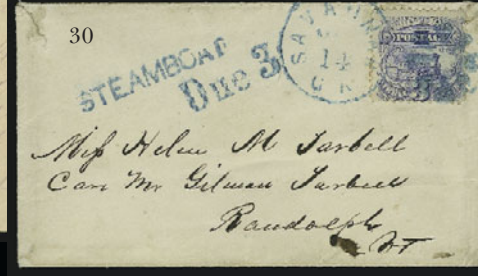 30
STEAMBOAT
Due 3
SAVANNAH
14
POSTAGE
Miss Helen M Tarbell
Care Mr Gilman Tarbell
Randolph
VT